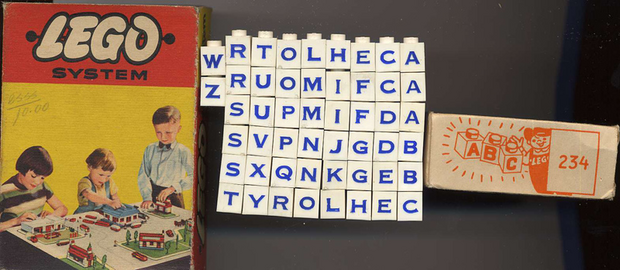 LEGO
SYSTEM
10.00
W R T O L H E C A
Z R U O M I F C A
S U P M I F D A
S V P N J G D B
S X Q N K G E B
T Y R O L H E C
ABC
LEGO
234